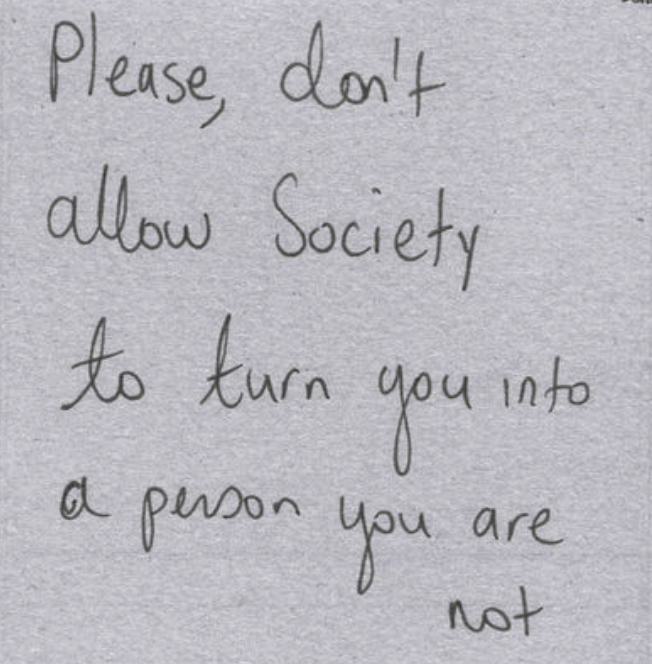 Please, don't
allow Society
to turn you into
a person you are
not